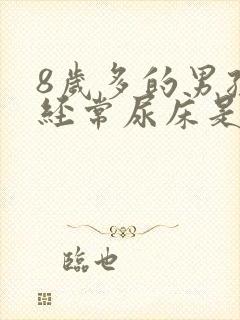 8歲多的男孩
經常尿床是
臨也